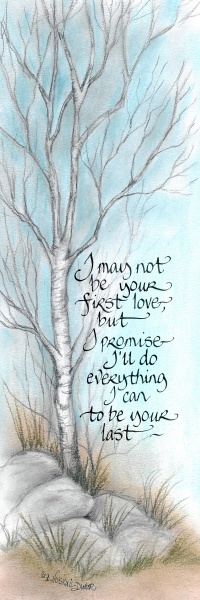 I may not
be your
first love,
but
I promise
I'll do
everything
I can
to be your
last ~